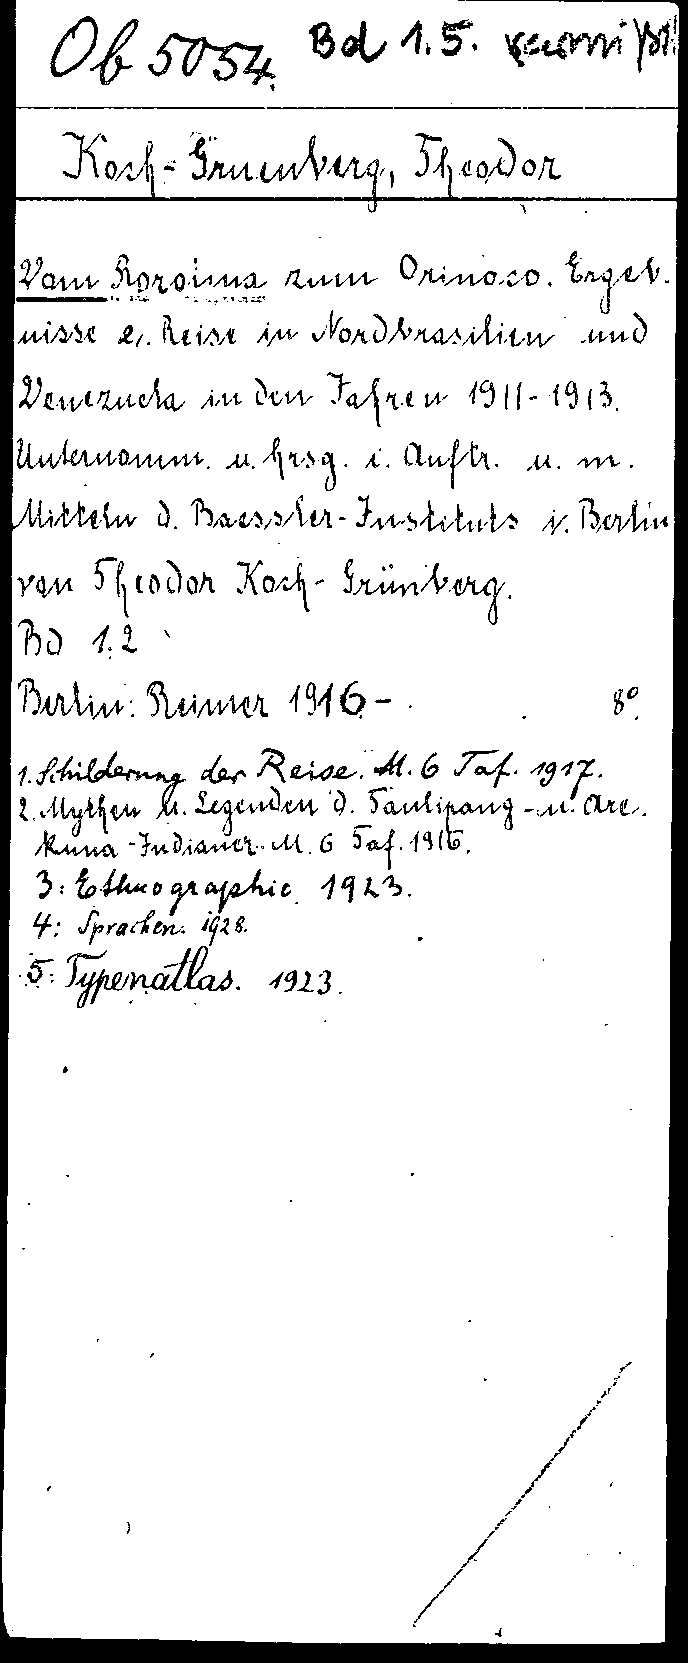 Ob 5054. Bd 1.5. vermißt!
Koch-Gruenberg, Theodor
Vom Roroima zum Orinoco. Ergeb-
nisse e. Reise in Nordbrasilien und
Venezuela in den Jahren 1911-1913.
Unternomm. u. hrsg. i. Auftr. u. m.
Mitteln d. Baessler-Instituts i. Berlin
von Theodor Koch-Grünberg.
Bd 1.2
Berlin: Reimer 1916- 8°
1. Schilderung der Reise. M. 6 Taf. 1917.
2. Mythen u. Legenden d. Taulipang- u. Are-
kuna-Indianer. M. 6 Taf. 1916.
3: Ethnographie 1923.
4: Sprachen. 1928.
5: Typenatlas. 1923.